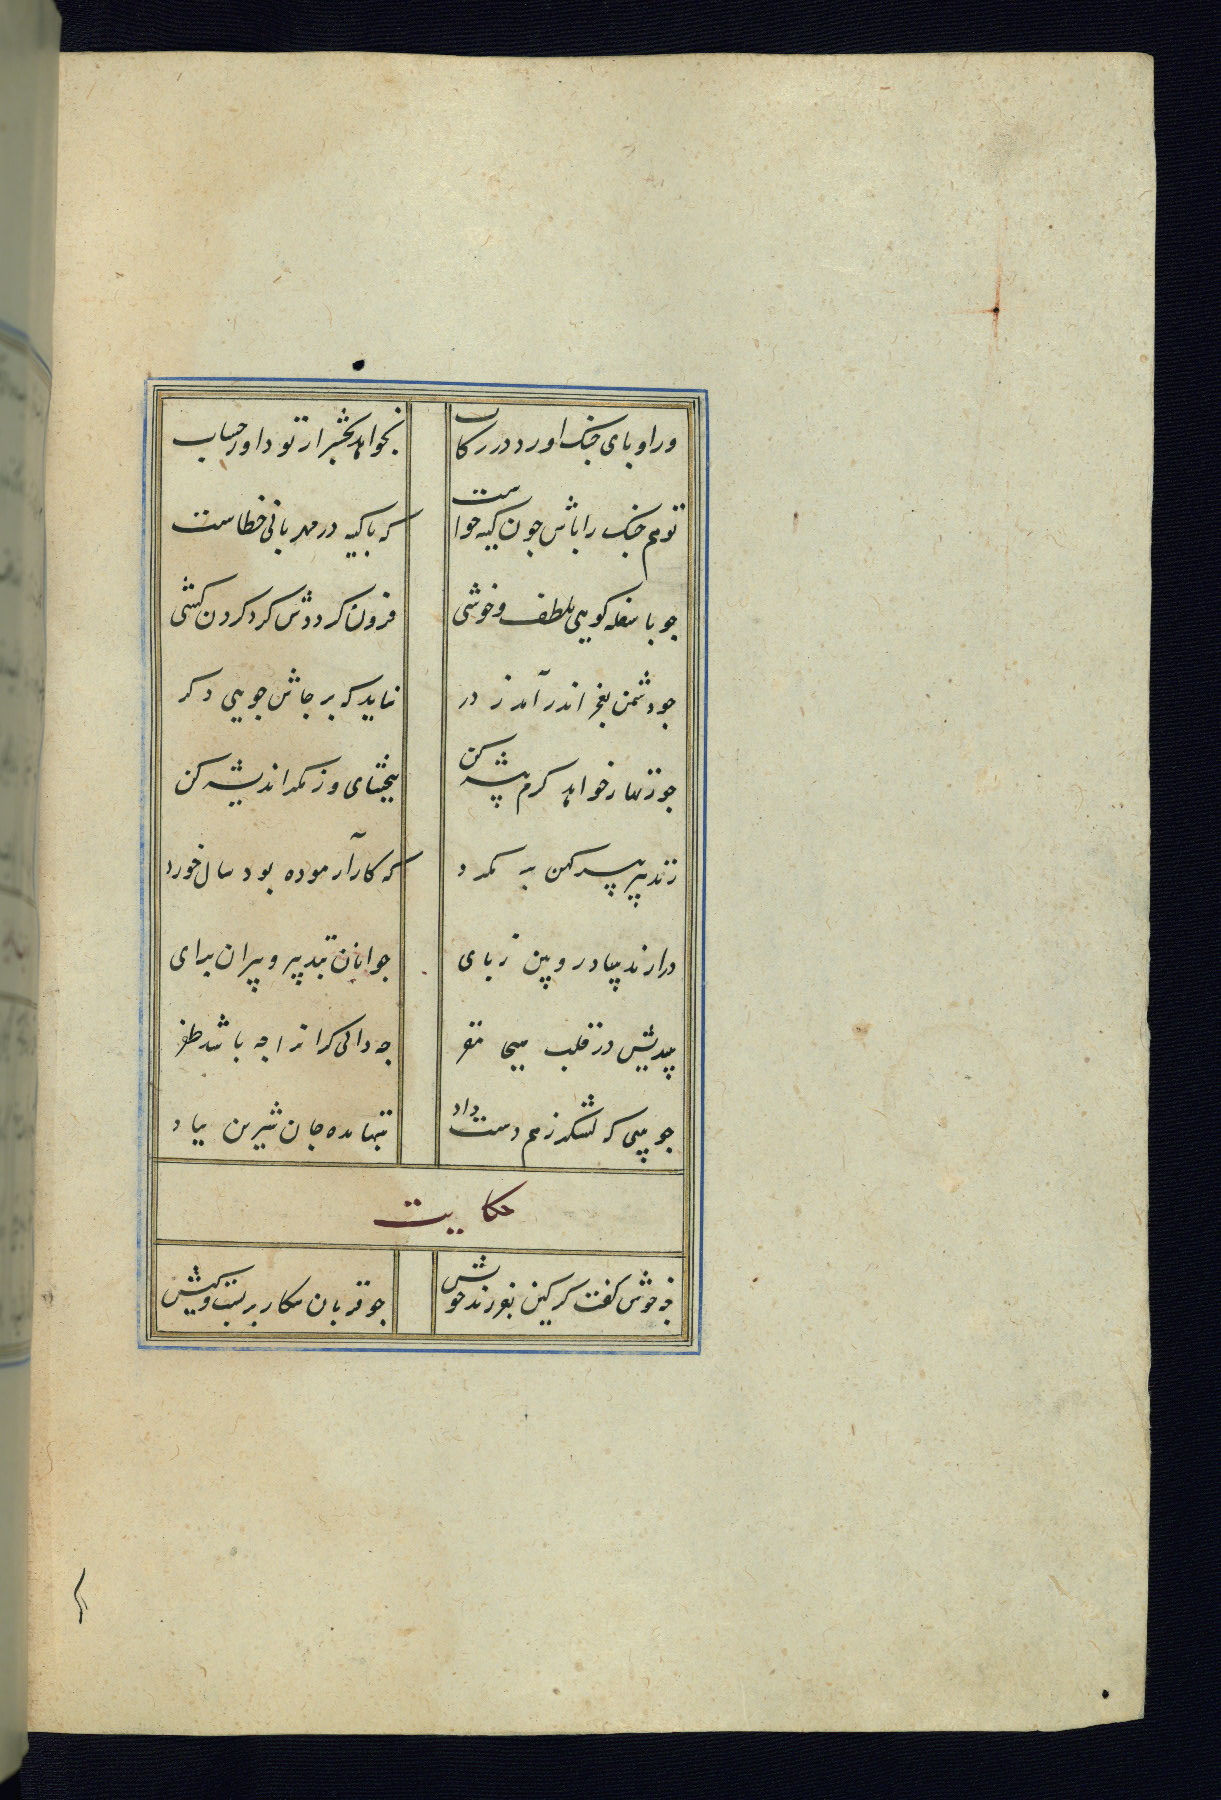 ور او پای جنک اورد در رکاب
نخواهد بحشر از تو داور حساب
تو هم جنک را باش چون کینه خواست
که با کینه ور مهربانی خطاست
چو با سفله کویی بلطف و خوشی
فزون کرددش کبر و کردن کشی
چو دشمن بعجز اندر آمد ز در
نباید که پرخاش جویی دکر
چو زنهار خواهد کرم پیشه کن
ببخشای و ز مکرش اندیشه کن
ز تدبیر پیر کهن بر مکرد
که کار آزموده بود سال خورد
در ارند بنیاد رویین ز پای
جوانان بتدبیر و پیران برای
بیندیش در قلب هیجا مفر
چه دانی کرانرا چه باشد ظفر
چو بینی که لشکر ز هم دست داد
بتنها مده جان شیرین بباد
حکایت
چه خوش کفت کرکین بفرزند خویش
چو قربان پیکار بر بست و کیش